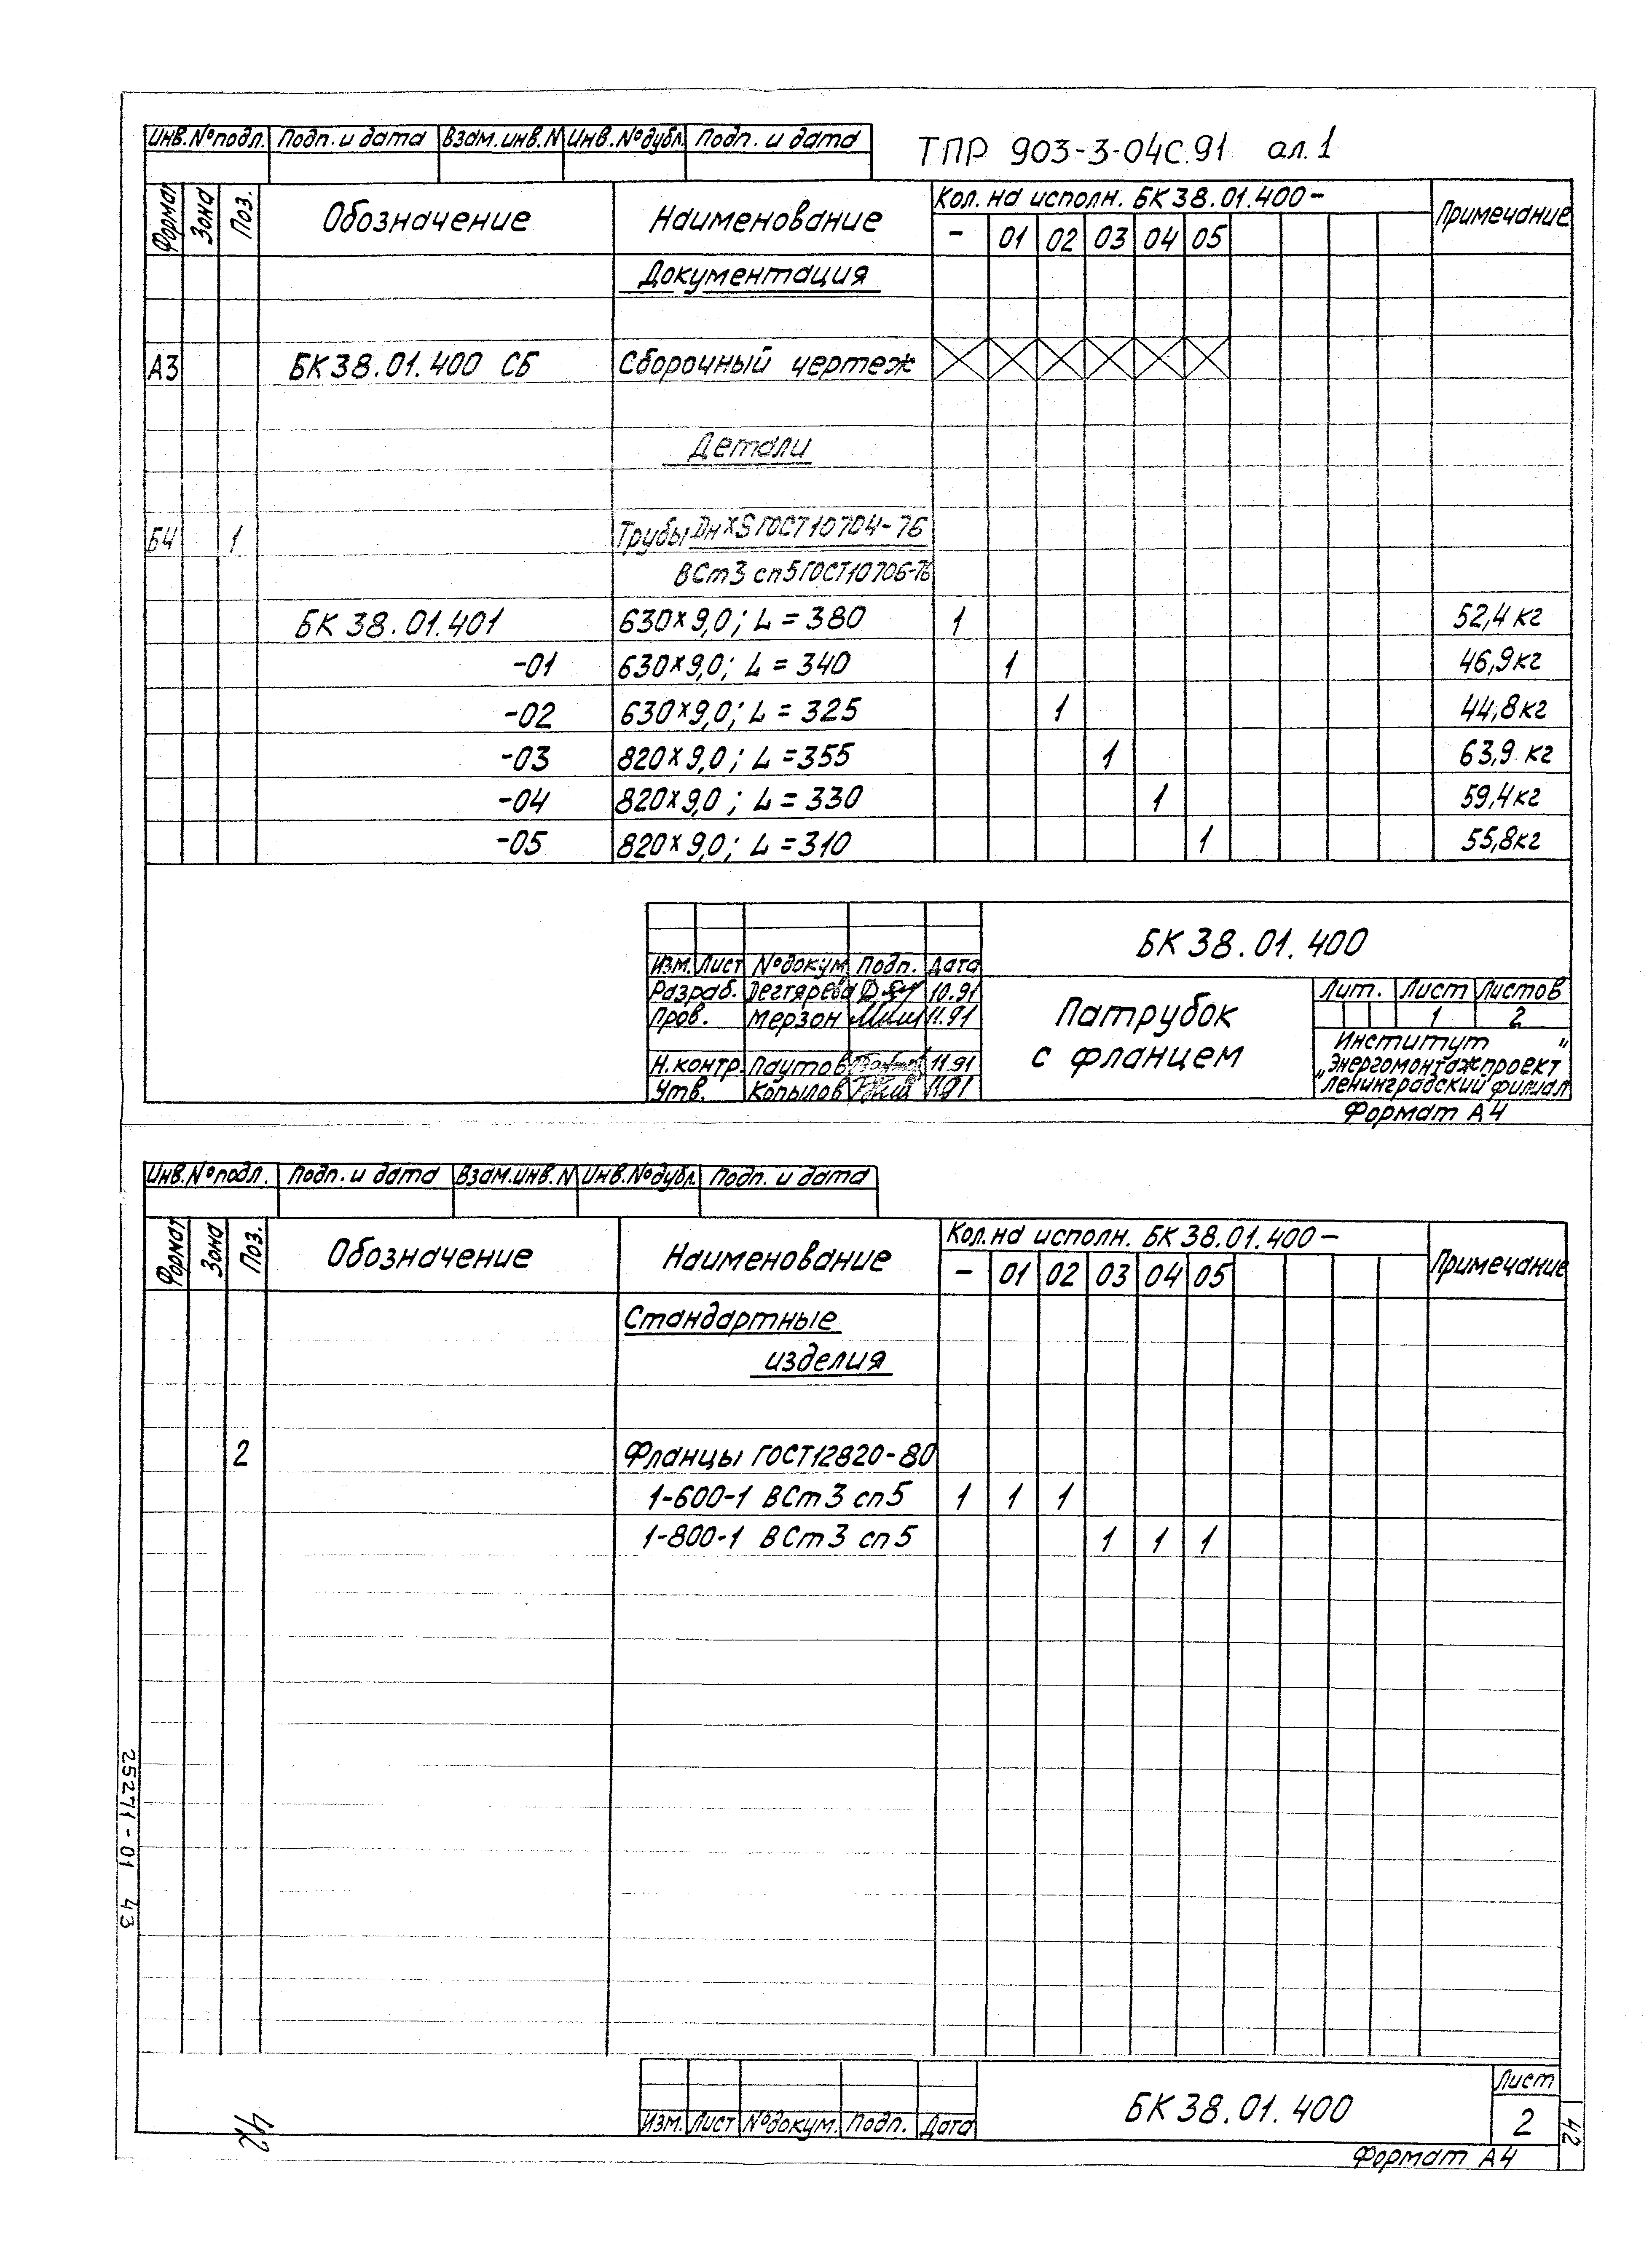 ТПР 903-3-04С.91 ал.1
Инв.№подл. Подп. и дата Взам.инв.N Инв.№дубл. Подп. и дата
Формат Зона Поз. Обозначение Наименование Кол. на исполн. БК38.01.400- Примечание
- 01 02 03 04 05
Документация
А3 БК38.01.400 СБ Сборочный чертеж
Детали
БЧ 1 Трубы Дн×S ГОСТ10704-76
ВСт3 сп5 ГОСТ10706-76
БК 38.01.401 630×9,0; L=380 1 52,4 кг
-01 630×9,0; L=340 1 46,9кг
-02 630×9,0; L=325 1 44,8кг
-03 820×9,0; L=355 1 63,9 кг
-04 820×9,0; L=330 1 59,4кг
-05 820×9,0; L=310 1 55,8кг
БК38.01.400
Изм. Лист №докум. Подп. Дата
Разраб. Дегтярева 10.91
Пров. Мерзон 11.91
Н.контр. Паутов 11.91
Утв. Копылов 11.91
Патрубок
с фланцем
Лит. Лист Листов
1 2
Институт
"Энергомонтажпроект"
Ленинградский филиал
Формат А4
Инв.№подл. Подп. и дата Взам.инв.N Инв.№дубл. Подп. и дата
Формат Зона Поз. Обозначение Наименование Кол. на исполн. БК38.01.400- Примечание
- 01 02 03 04 05
Стандартные
изделия
2 Фланцы ГОСТ12820-80
1-600-1 ВСт3 сп5 1 1 1
1-800-1 ВСт3 сп5 1 1 1
25271-01 43
Изм. Лист №докум. Подп. Дата
БК38.01.400
Лист
2
42
42
Формат А4